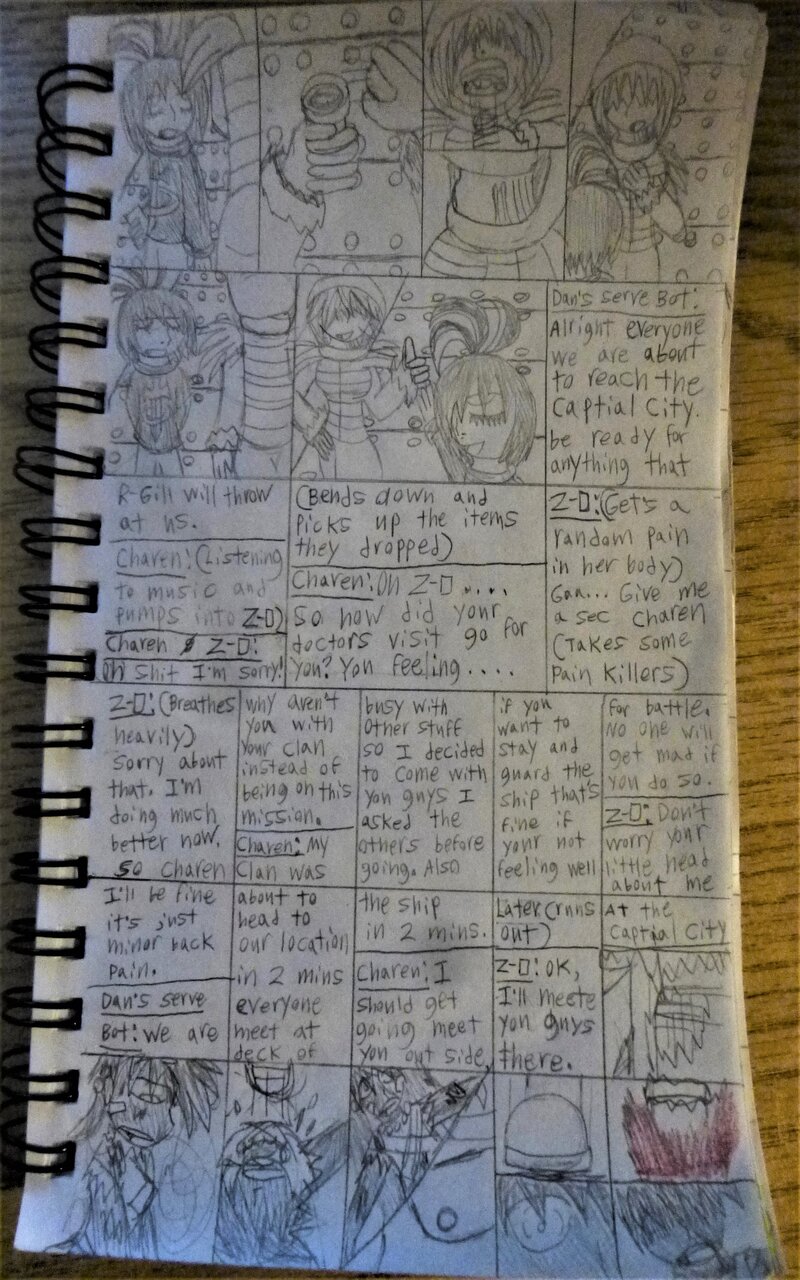 Dan's serve Bot:
Alright everyone
we are about
to reach the
Captial City.
be ready for
anything that
R-Gill will throw
at us.
Charen: (Listening
to music and
pumps into Z-D)
Charen & Z-D:
Oh shit I'm sorry!
(Bends down and
Picks up the items
they dropped)
Charen: Oh Z-D....
So how did your
doctors visit go for
you? You feeling....
Z-D: (Gets a
random pain
in her body)
Gan... Give me
a sec Charen
(Takes some
Pain Killers)
Z-D: (Breathes
heavily)
Sorry about
that. I'm
doing much
better now.
So Charen
why aren't
you with
your clan
instead of
being on this
mission.
Charen: My
Clan was
busy with
other stuff
so I decided
to come with
you guys I
asked the
others before
going. Also
if you
want to
stay and
guard the
ship that's
fine if
your not
feeling well
for battle.
No one will
get mad if
you do so.
Z-D: Don't
worry your
little head
about me
I'll be fine
it's just
minor back
pain.
Dan's serve
Bot: We are
about to
head to
our location
in 2 mins
everyone
meet at
deck of
the ship
in 2 mins.
Charen: I
should get
going meet
you out side
Later (runs
out)
Z-D: OK,
I'll meete
you guys
there.
At the
Captial City